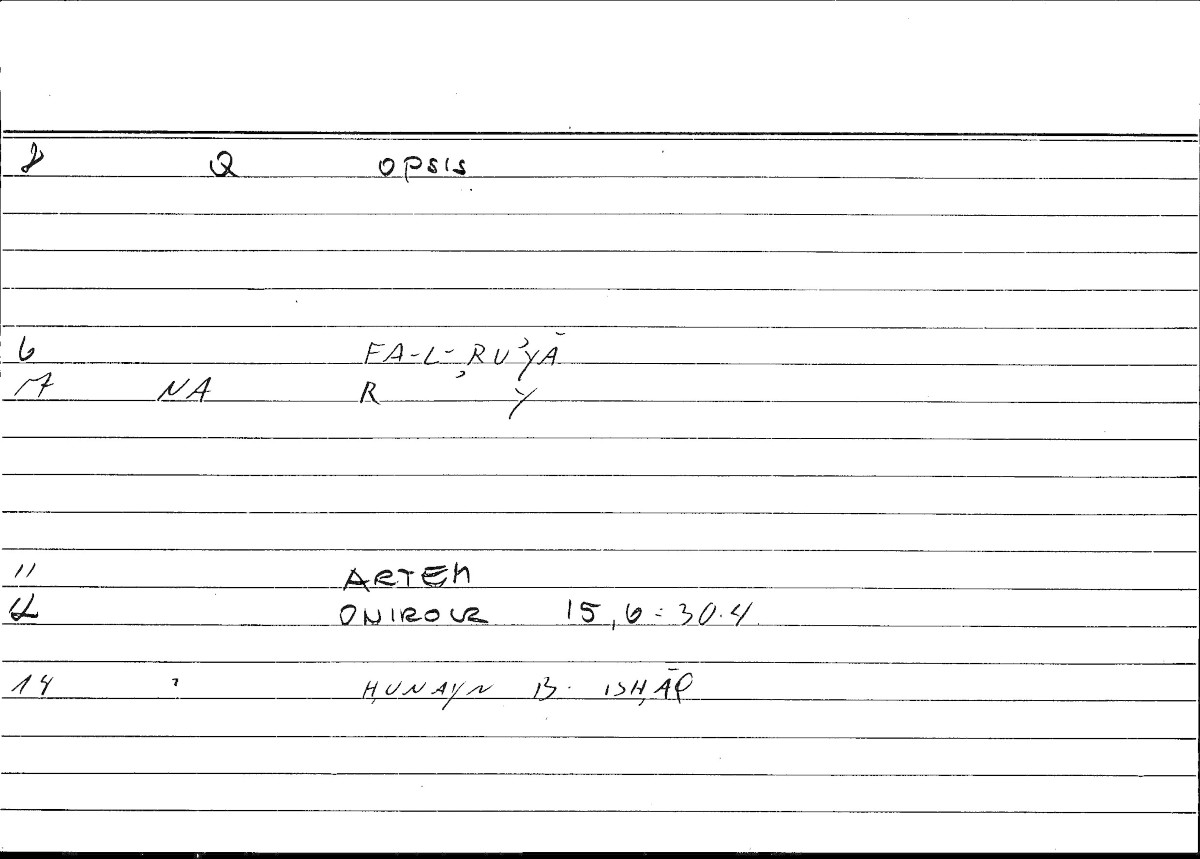 Q OPSIS
6 FA-L-RU'YĀ
7 NA R Y
11 ARTEM
ONIROCR 15,6 = 30.4
14 ḤUNAYN B. ISḤĀQ